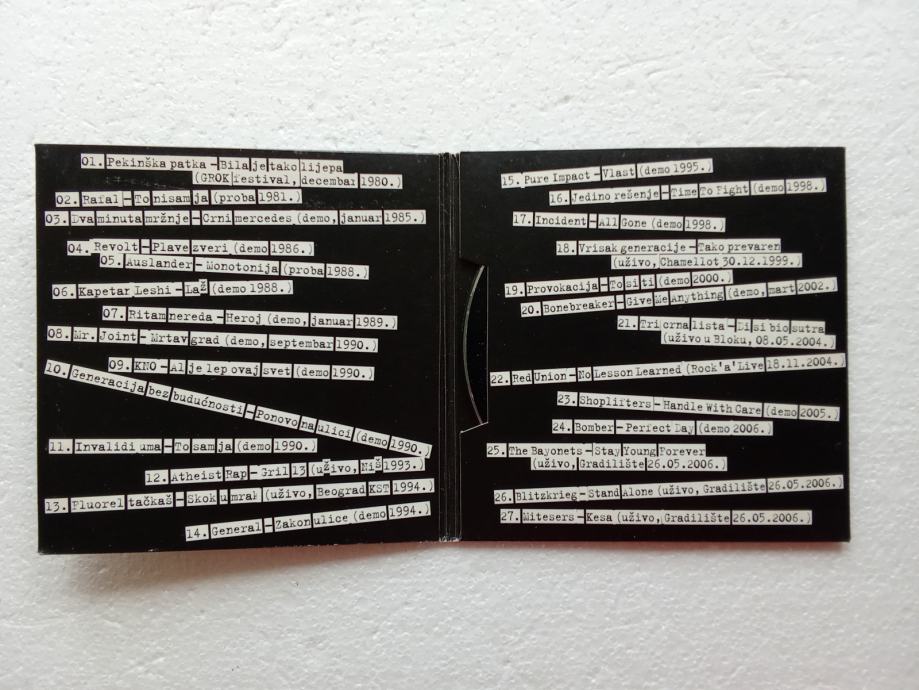 01. Pekinška patka – Bila je tako lijepa
(GROK festival, decembar 1980.)
02. Rafal – To nisam ja (proba 1981.)
03. Dva minuta mržnje – Crni mercedes (demo, januar 1985.)
04. Revolt – Plave zveri (demo 1986.)
05. Auslander – Monotonija (proba 1988.)
06. Kapetan Leshi – Laž (demo 1988.)
07. Ritam nereda – Heroj (demo, januar 1989.)
08. Mr. Joint – Mrtav grad (demo, septembar 1990.)
09. KNO – Al je lep ovaj svet (demo 1990.)
10. Generacija bez budućnosti – Ponovo na ulici (demo 1990.)
11. Invalidi uma – To sam ja (demo 1990.)
12. Atheist Rap – Gril 13 (uživo, Niš 1993.)
13. Fluorel tačkaš – Skok u mrak (uživo, Beograd KST 1994.)
14. General – Zakon ulice (demo 1994.)
15. Pure Impact – Vlast (demo 1995.)
16. Jedino rešenje – Time To Fight (demo 1998.)
17. Incident – All Gone (demo 1998.)
18. Vrisak generacije – Tako prevaren
(uživo, Chamellot 30.12.1999.)
19. Provokacija – To si ti (demo 2000.)
20. Bonebreaker – Give Me Anything (demo, mart 2002.)
21. Tri crna lista – Di si bio sutra
(uživo u Bloku, 08.05.2004.)
22. Red Union – No Lesson Learned (Rock'a'Live 18.11.2004.)
23. Shoplifters – Handle With Care (demo 2005.)
24. Bomber – Perfect Day (demo 2006.)
25. The Bayonets – Stay Young Forever
(uživo, Gradilište 26.05.2006.)
26. Blitzkrieg – Stand Alone (uživo, Gradilište 26.05.2006.)
27. Mitesers – Kesa (uživo, Gradilište 26.05.2006.)